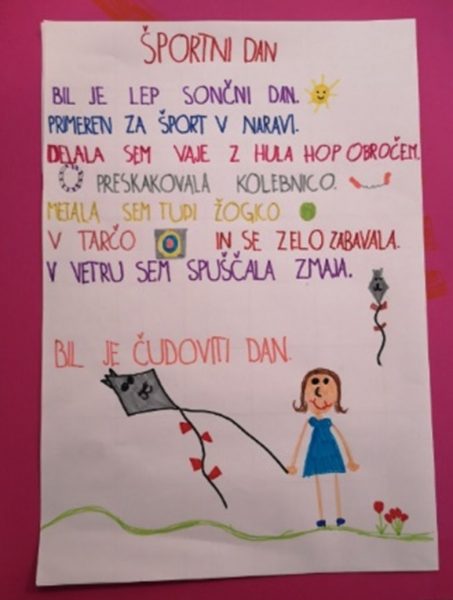 ŠPORTNI DAN
BIL JE LEP SONČNI DAN.
PRIMEREN ZA ŠPORT V NARAVI.
DELALA SEM VAJE Z HULA HOP OBROČEM,
PRESKAKOVALA KOLEBNICO.
METALA SEM TUDI ŽOGICO
V TARČO IN SE ZELO ZABAVALA.
V VETRU SEM SPUŠČALA ZMAJA.
BIL JE ČUDOVITI DAN.